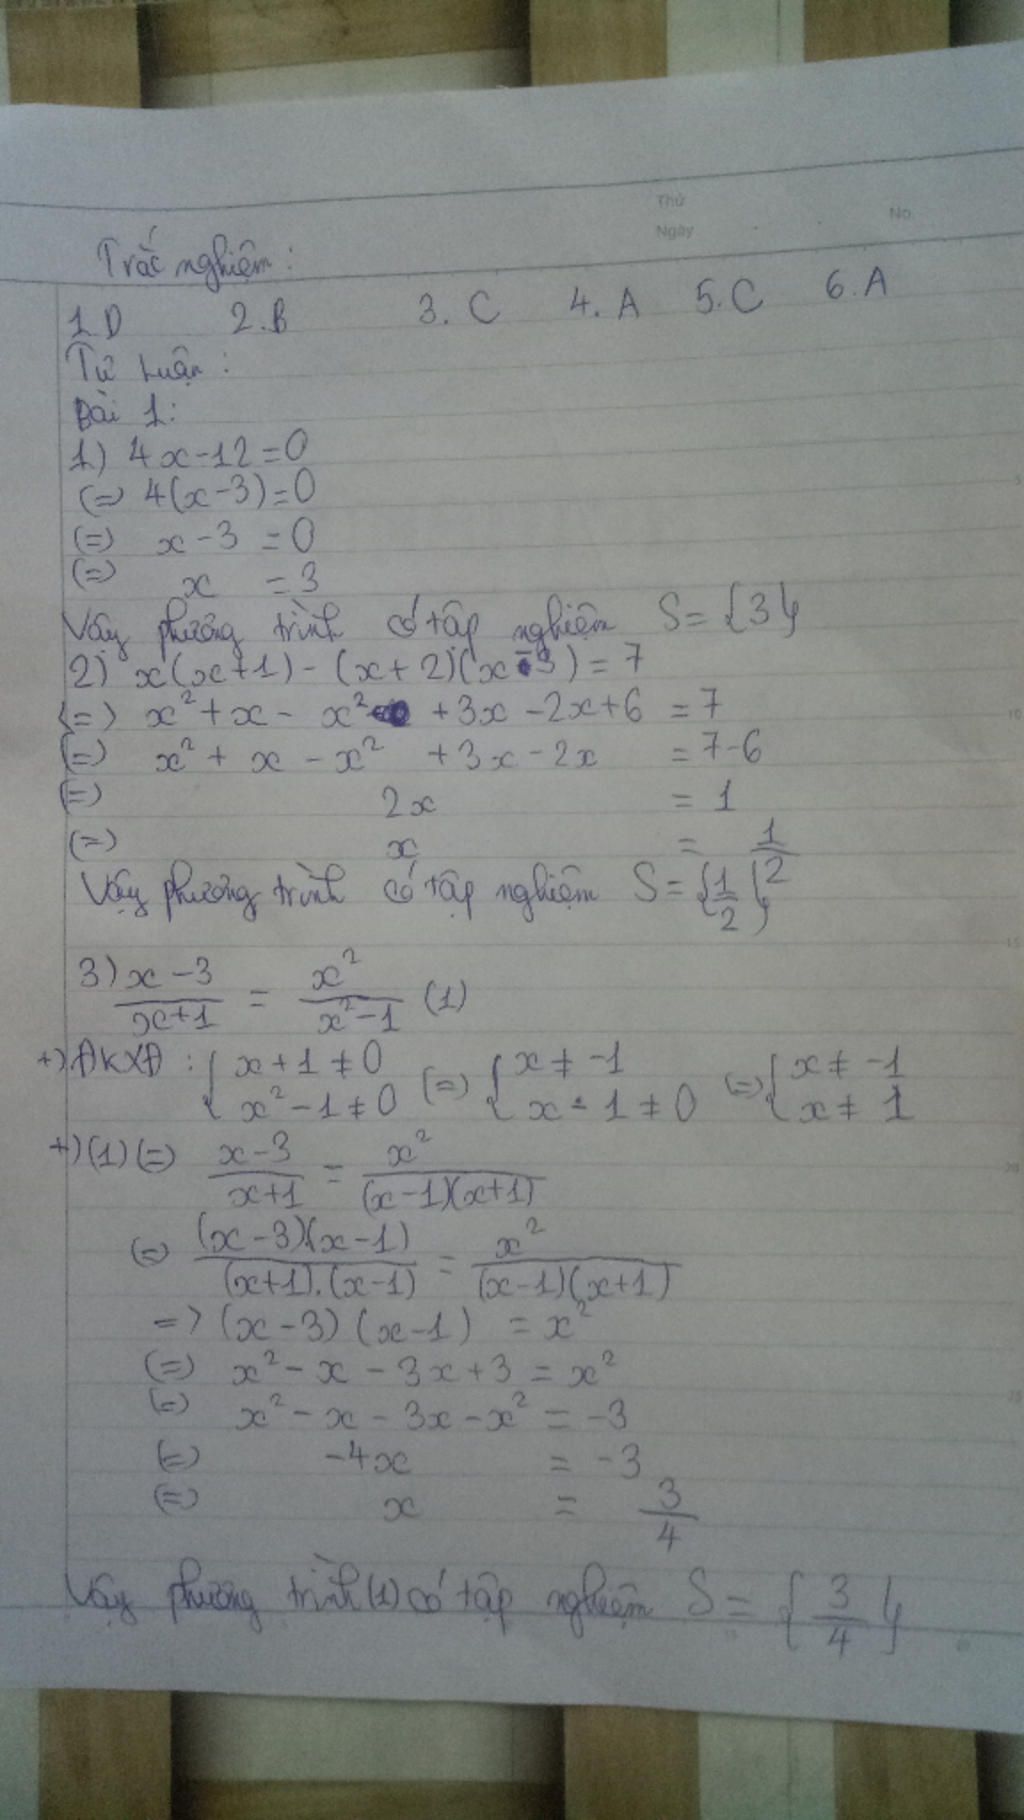 Thứ
Ngày No.
Trắc nghiệm:
1.D 2.B 3.C 4.A 5.C 6.A
Tự Luận:
Bài 1:
1) 4x-12=0
(=) 4(x-3)=0
(=) x-3 =0
(=) x =3
Vậy phương trình có tập nghiệm S={3}
2) x(x+1)-(x+2)(x-3)=7
(=) x²+x- x² +3x-2x+6 =7
(=) x²+x-x² +3x-2x =7-6
(=) 2x = 1
(=) x = 1/2
Vậy phương trình có tập nghiệm S={1/2}
3) (x-3)/(x+1) = x²/(x²-1) (1)
+) ĐKXĐ: { x+1≠0 x²-1≠0 (=) { x≠-1 x-1≠0 (=) { x≠-1 x≠1
+) (1) (=) (x-3)/(x+1) = x²/((x-1)(x+1))
(=) ((x-3)(x-1))/((x+1).(x-1)) = x²/((x-1)(x+1))
=> (x-3)(x-1) = x²
(=) x²-x-3x+3=x²
(=) x²-x-3x-x²=-3
(=) -4x = -3
(=) x = 3/4
Vậy phương trình (1) có tập nghiệm S={3/4}